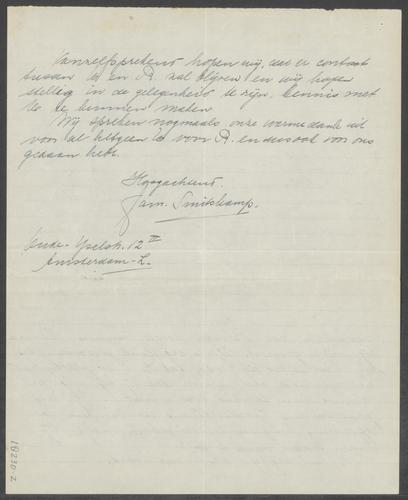 Vanzelfsprekend hopen wij, dat er contact
tussen U en R. zal blijven en wij hopen
stellig in de gelegenheid te zijn, kennis met
U te kunnen maken.
Wij spreken nogmaals onze warme dank uit
voor al hetgeen U voor R. en dus ook voor ons
gedaan hebt.
Hoogachtend,
Fam. Smitskamp.
Oude-Yselstr. 12 II
Amsterdam-Z.
18230-2